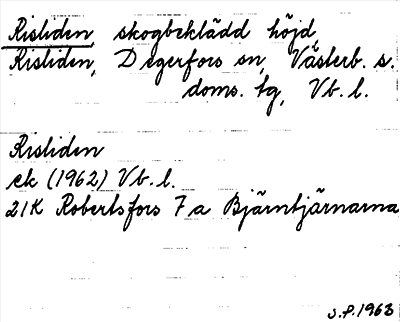 Risliden, skogbeklädd höjd,
Risliden, Degerfors sn, Västerb. s.
doms. tg, Vb. l.
Risliden
ek (1962) Vb. l.
21K Robertsfors 7a Bjärntjärnarna
S.P. 1963